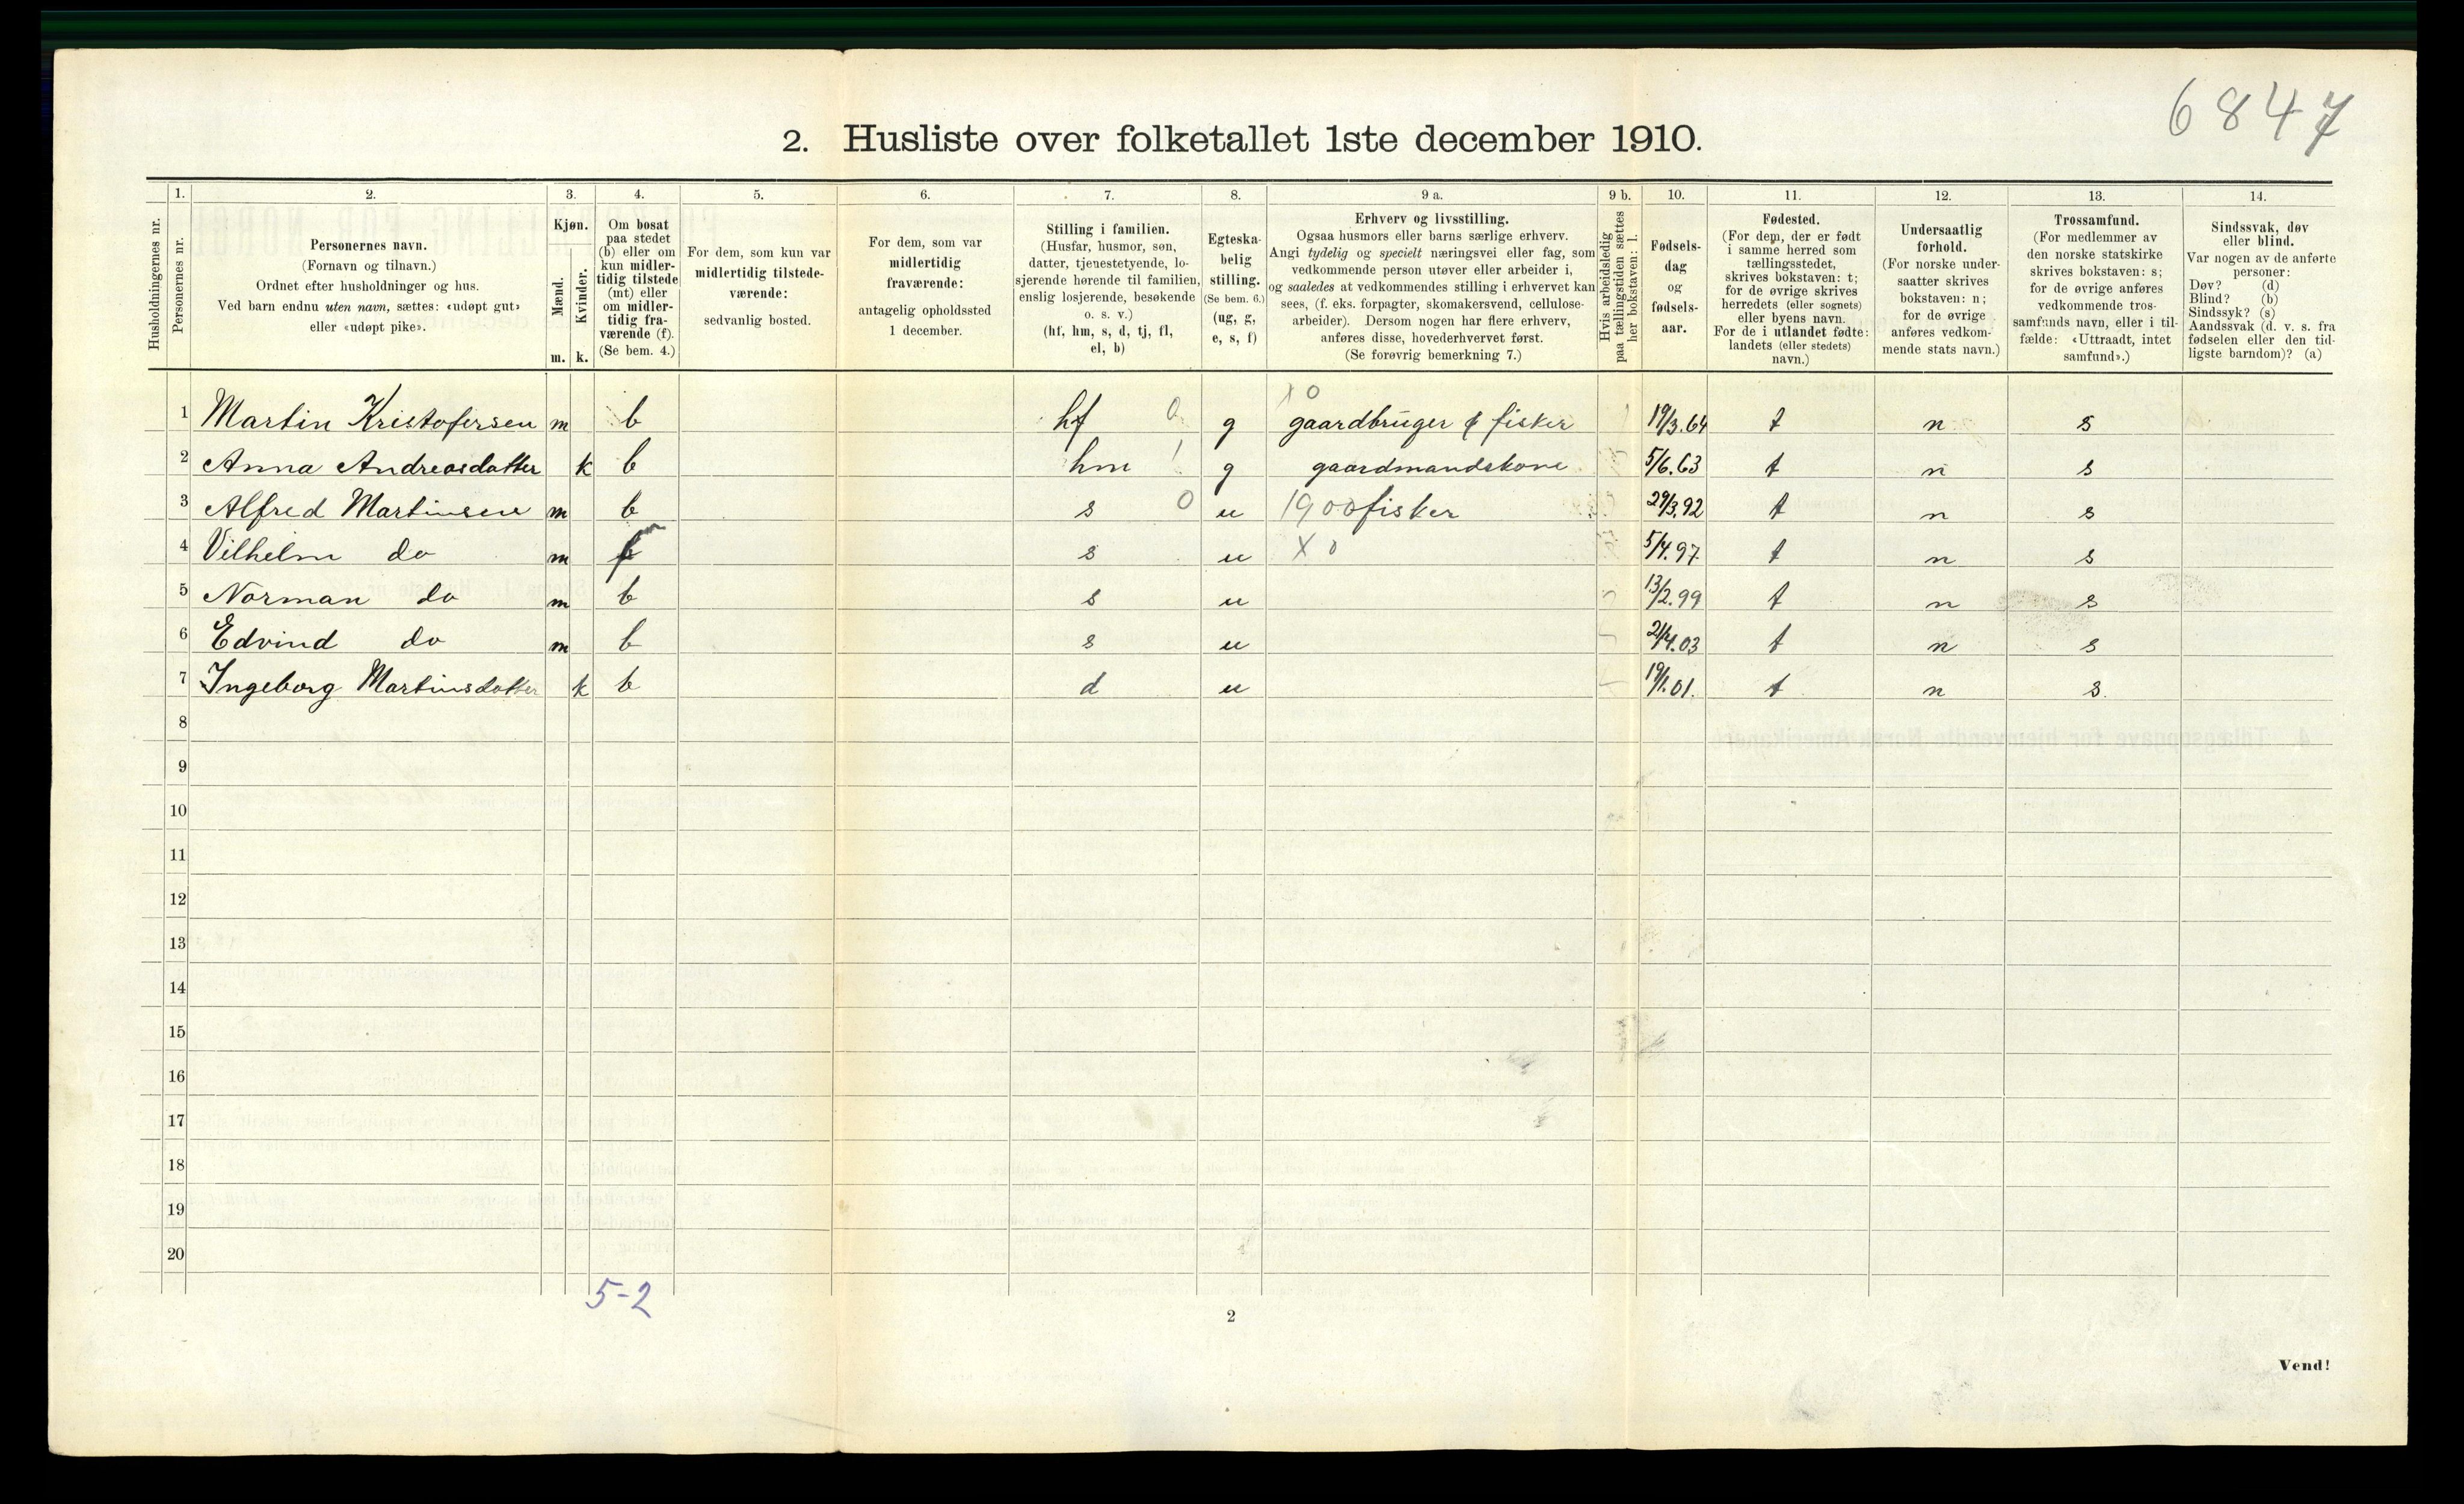 6847
2. Husliste over folketallet 1ste december 1910.
Husholdningernes nr.
1.
Personernes nr.
2.
Personernes navn.
(Fornavn og tilnavn.)
Ordnet efter husholdninger og hus.
Ved barn endnu uten navn, sættes: «udøpt gut»
eller «udøpt pike».
3.
Kjøn.
Mænd.
Kvinder.
m. k.
4.
Om bosat
paa stedet
(b) eller om
kun midler-
tidig tilstede
(mt) eller
om midler-
tidig fra-
værende (f).
(Se bem. 4.)
5.
For dem, som kun var
midlertidig tilstede-
værende:
sedvanlig bosted.
6.
For dem, som var
midlertidig
fraværende:
antagelig opholdssted
1 december.
7.
Stilling i familien.
(Husfar, husmor, søn,
datter, tjenestetyende, lo-
sjerende hørende til familien,
enslig losjerende, besøkende
o. s. v.)
(hf, hm, s, d, tj, fl,
el, b)
8.
Egteska-
belig
stilling.
(Se bem. 6.)
(ug, g,
e, s, f)
9 a.
Erhverv og livsstilling.
Ogsaa husmors eller barns særlige erhverv.
Angi tydelig og specielt næringsvei eller fag, som
vedkommende person utøver eller arbeider i,
og saaledes at vedkommendes stilling i erhvervet kan
sees, (f. eks. forpagter, skomakersvend, cellulose-
arbeider). Dersom nogen har flere erhverv,
anføres disse, hovederhvervet først.
(Se forøvrig bemerkning 7.)
9 b.
Hvis arbeidsledig
paa tællingstiden sættes
her bokstaven: l.
10.
Fødsels-
dag
og
fødsels-
aar.
11.
Fødested.
(For dem, der er født
i samme herred som
tællingsstedet,
skrives bokstaven: t;
for de øvrige skrives
herredets (eller sognets)
eller byens navn.
For de i utlandet fødte:
landets (eller stedets)
navn.)
12.
Undersaatlig
forhold.
(For norske under-
saatter skrives
bokstaven: n;
for de øvrige
anføres vedkom-
mende stats navn.)
13.
Trossamfund.
(For medlemmer av
den norske statskirke
skrives bokstaven: s;
for de øvrige anføres
vedkommende tros-
samfunds navn, eller i til-
fælde: «Uttraadt, intet
samfund».)
14.
Sindssvak, døv
eller blind.
Var nogen av de anførte
personer:
Døv? (d)
Blind? (b)
Sindssyk? (s)
Aandssvak (d. v. s. fra
fødselen eller den tid-
ligste barndom)? (a)
x 0
1 Martin Kristofersen m b hf 0 g gaardbruger & fisker 19/3.64 t n s
2 Anna Andreasdatter k b hm 1 g gaardmandskone 5/6.63 t n s
3 Alfred Martinsen m b s 0 u 1900 fisker 29/3.92 t n s
4 Vilhelm do m s u X 0 5/4.97. t n s
5 Norman do m b s u 13/2.99 t n s
6 Edvind do m b s u 21/4.03 t n s
7 Ingeborg Martinsdatter k b d u 19/1.01. t n s.
8
9
10
11
12
13
14
15
16
17
18
19
20
5-2
2
Vend!